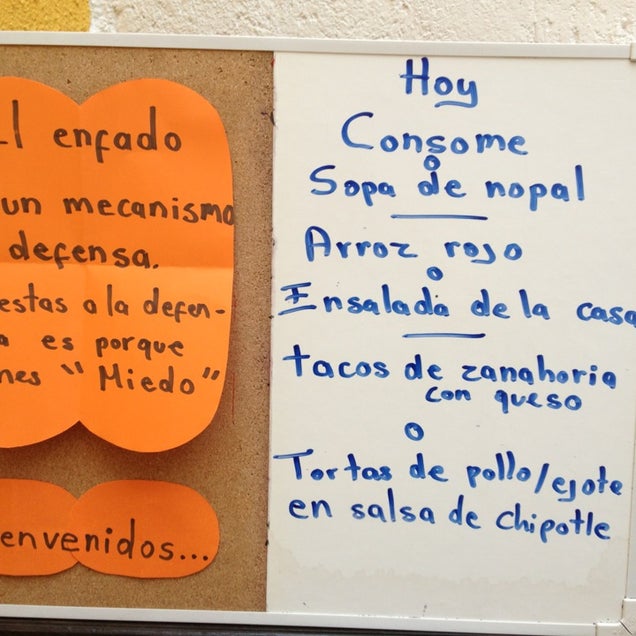 El enfado
un mecanismo
defensa.
estas a la defen-
es porque
"Miedo"
envenidos...
Hoy
Consome
o
Sopa de nopal
Arroz rojo
o
Ensalada de la casa
tacos de zanahoria
con queso
o
Tortas de pollo/ejote
en salsa de chipotle